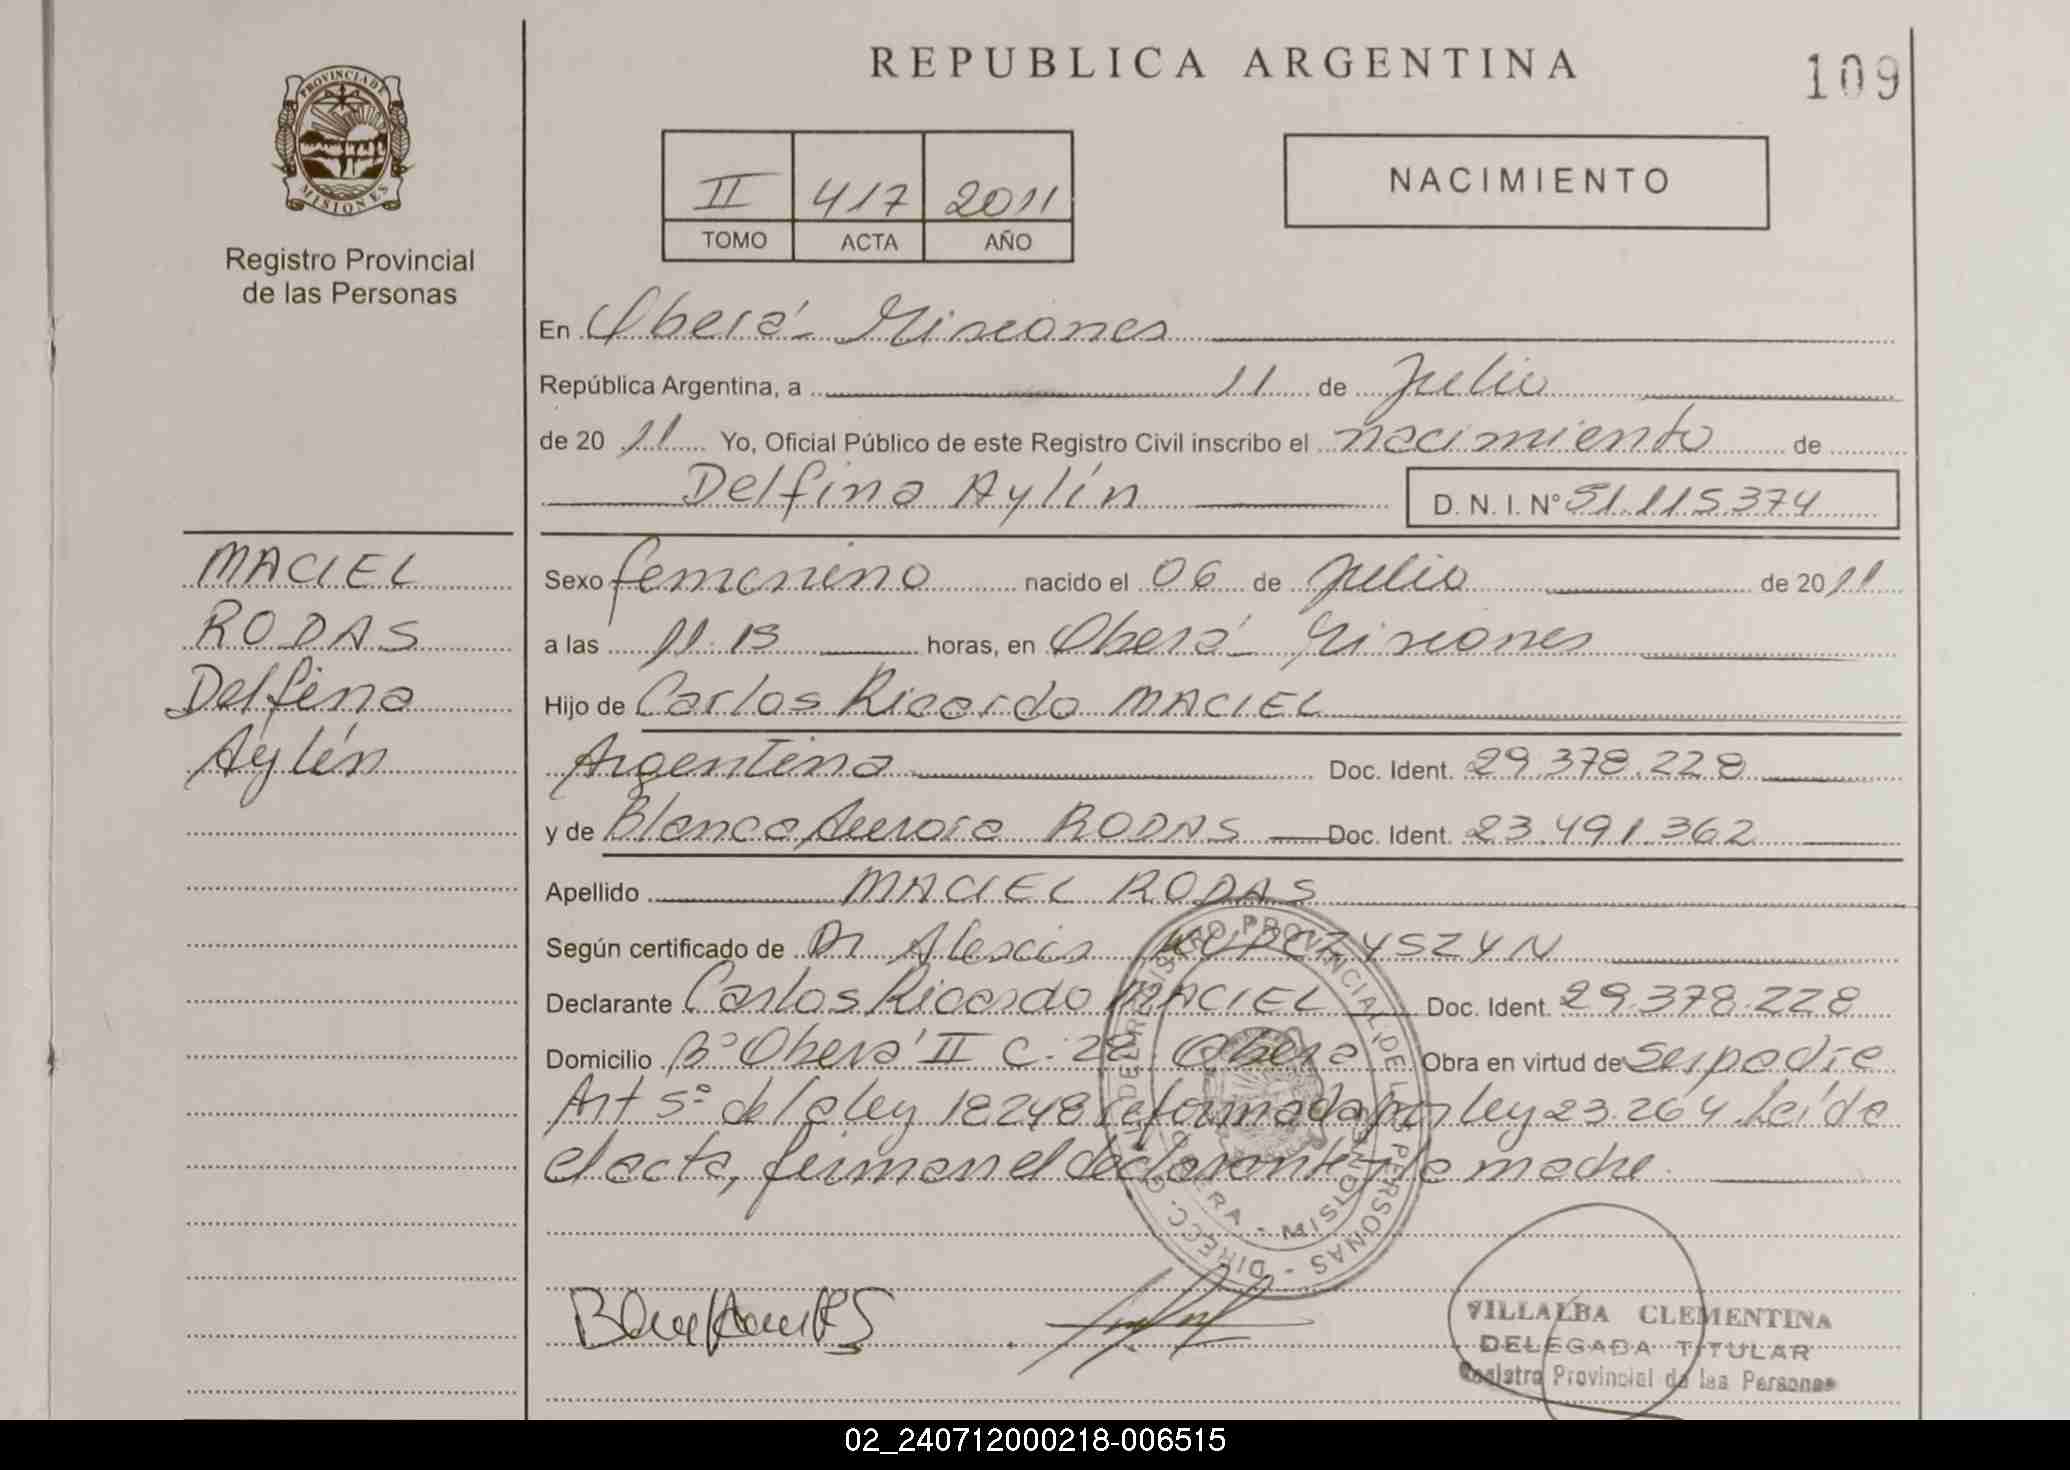 REPUBLICA ARGENTINA
109
PROVINCIA DE
MISIONES
Registro Provincial
de las Personas
II 417 2011
TOMO ACTA AÑO
NACIMIENTO
En Oberá - Misiones
República Argentina, a 11 de Julio
de 2011 Yo, Oficial Público de este Registro Civil inscribo el nacimiento de
Delfina Aylín D. N. I. N° 51.115.374
MACIEL
RODAS
Delfina
Aylín
Sexo femenino nacido el 06 de Julio de 2011
a las 11.15 horas, en Oberá - Misiones
Hijo de Carlos Ricardo MACIEL
Argentina Doc. Ident. 29.378.228
y de Blanca Aurora RODAS Doc. Ident. 23.491.362
Apellido MACIEL RODAS
Según certificado de Dr Alexis KUPCZYSZYN
Declarante Carlos Ricardo MACIEL Doc. Ident. 29.378.228
Domicilio B° Oberá II C. 28. Oberá Obra en virtud de ser padre
Art 5° de la ley 18248 reformada por ley 23.264. Leída
el acta, firman el declarante y la madre.
DIRECC. GRAL. DEL REGISTRO PROVINCIAL DE LAS PERSONAS
OBERA - MISIONES
VILLALBA CLEMENTINA
DELEGADA TITULAR
Registro Provincial de las Personas
02_240712000218-006515